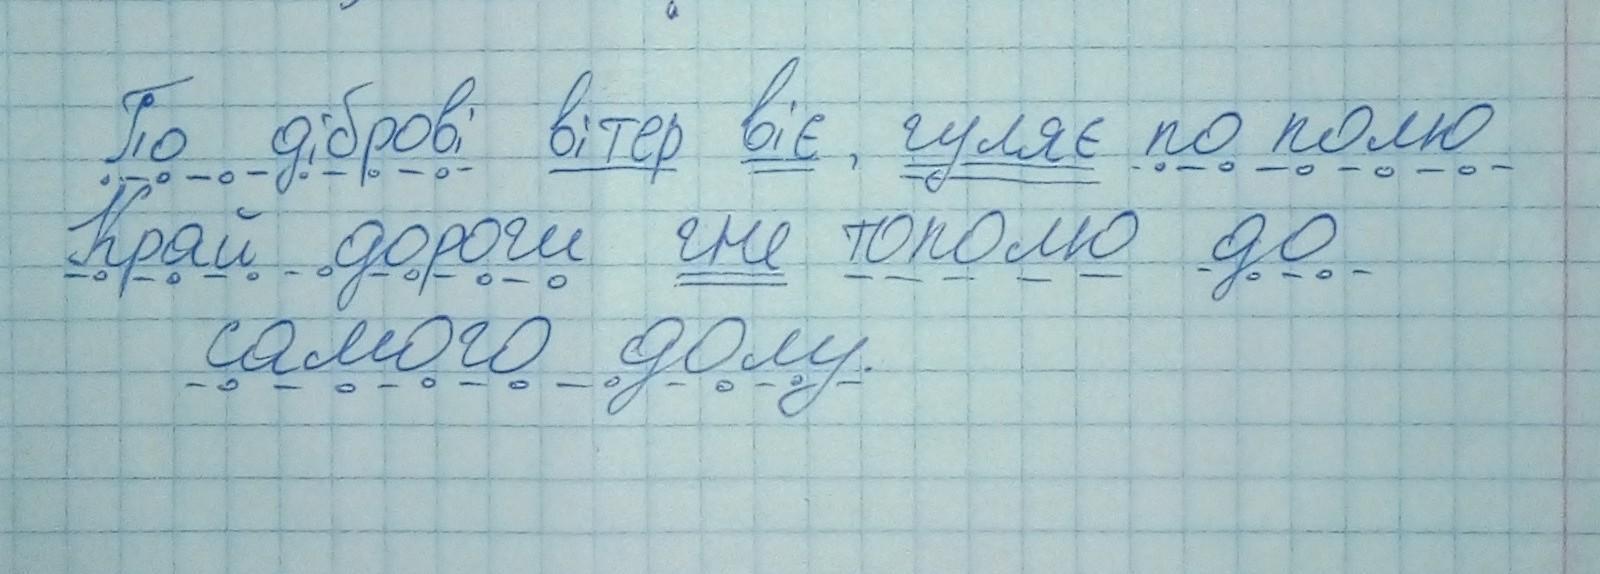 По діброві вітер віє, гуляє по полю
Край дороги гне тополю до
самого долу.